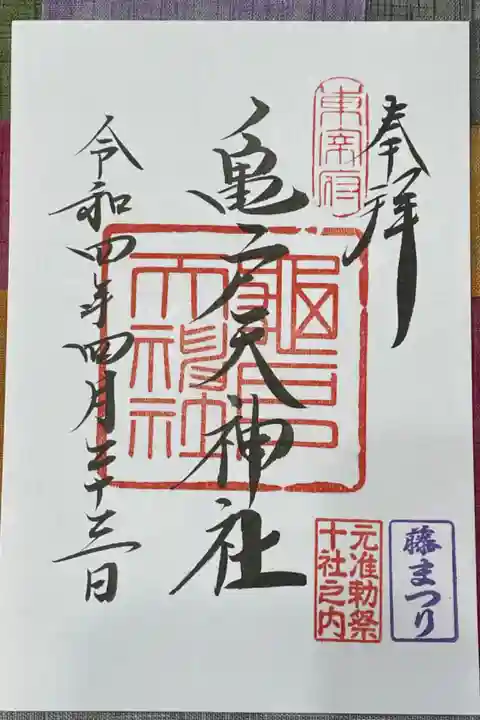 奉拝
東宰府
亀戸天神社
亀戸天神社
令和四年四月二十三日
藤まつり
元准勅祭
十社之内